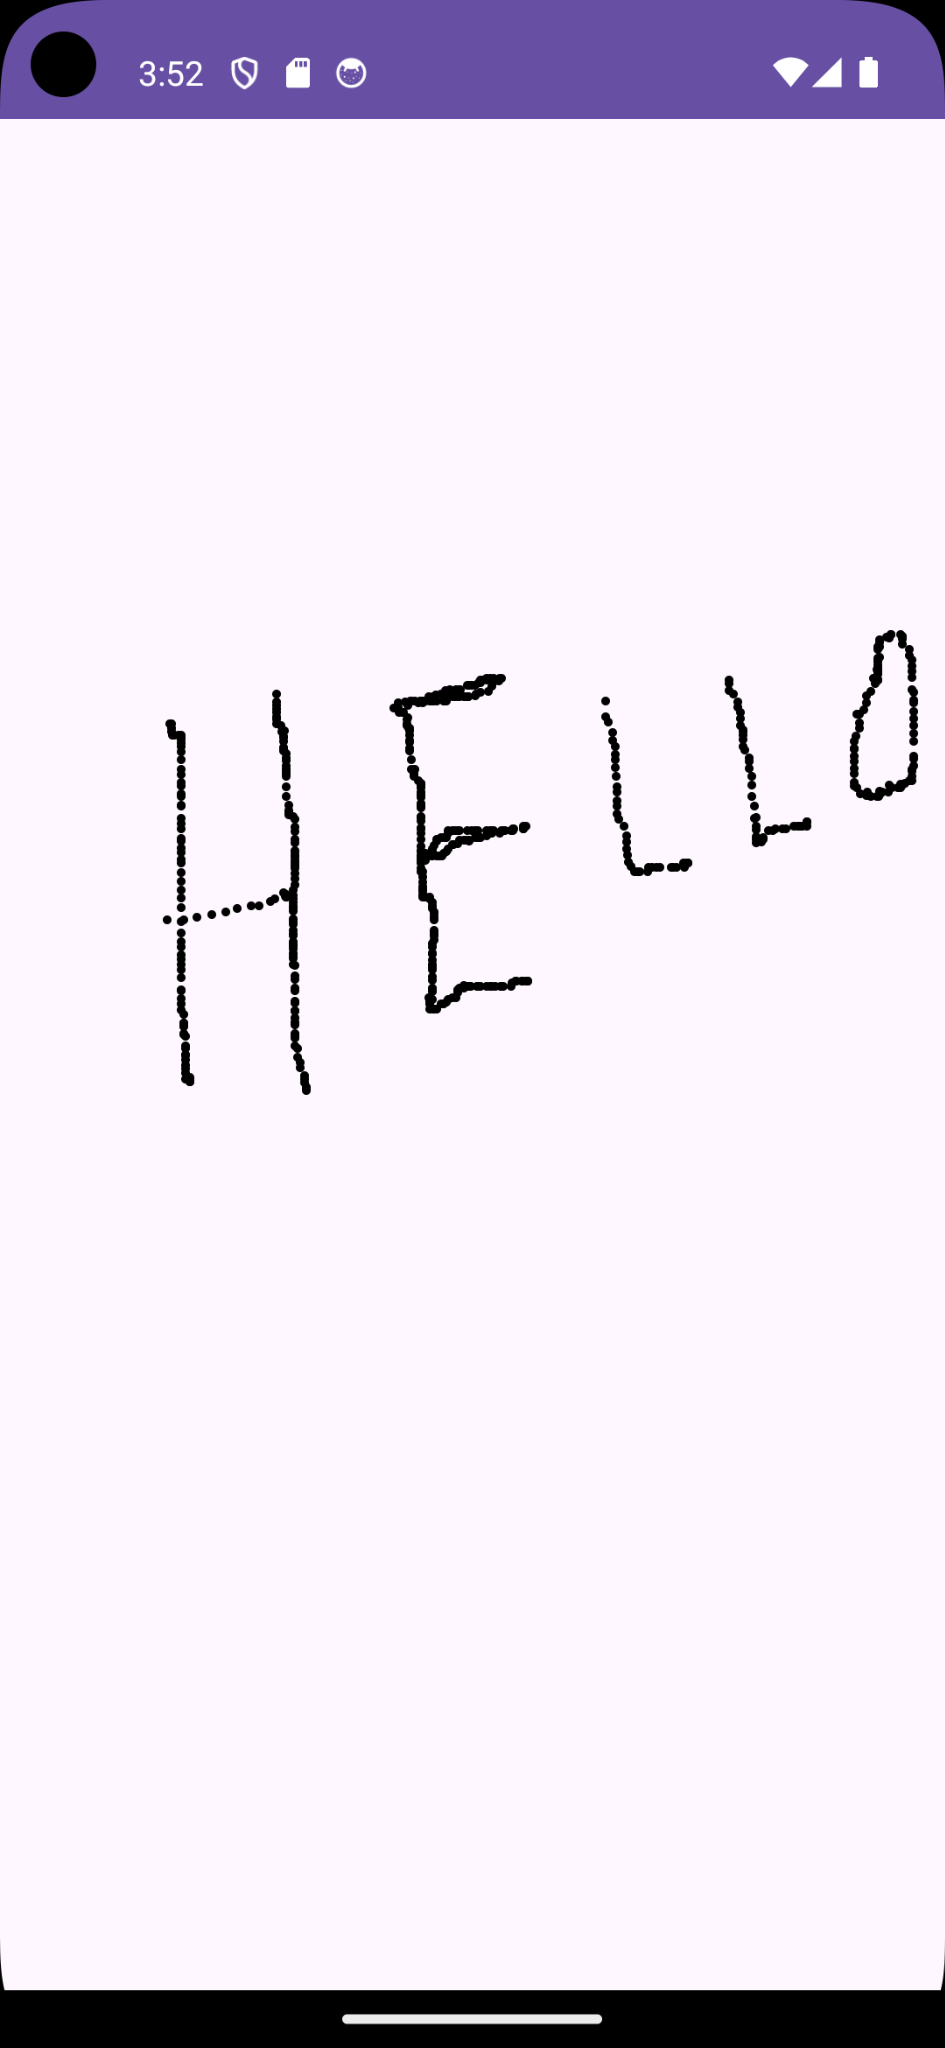 3:52
HELLO